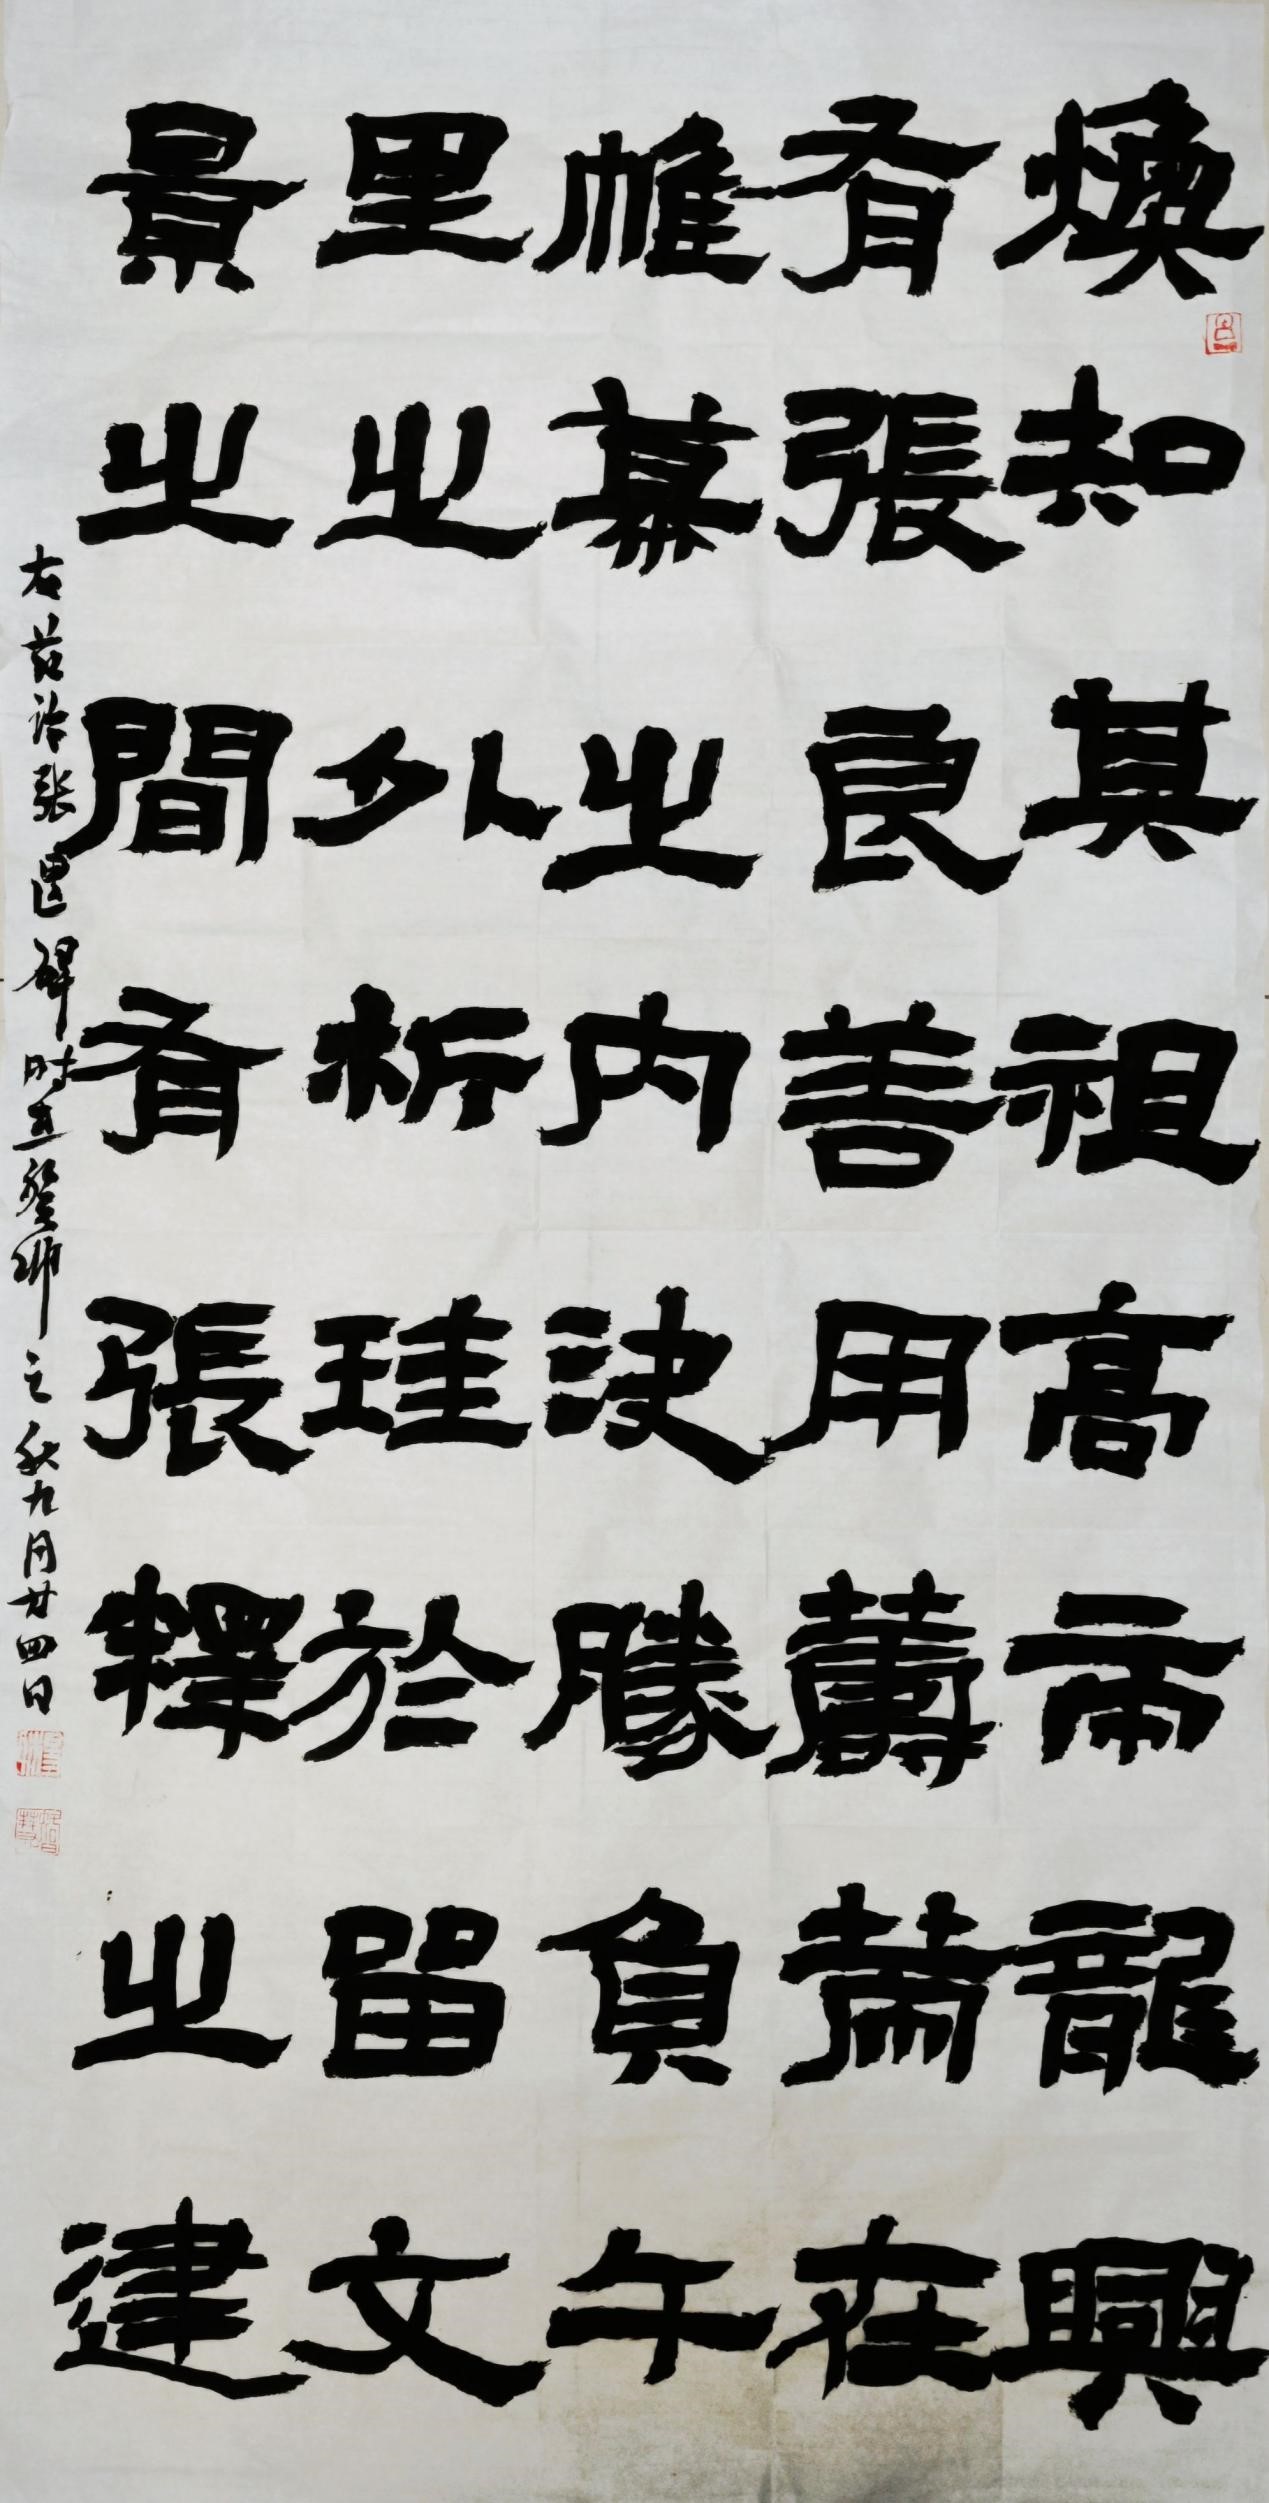 煥知其祖高帝龍興
有張良善用籌策在
帷幕之内決勝負千
里之外析珪於留文
景之間有張釋之建
右節临张遷碑时在癸卯之秋九月廿四日